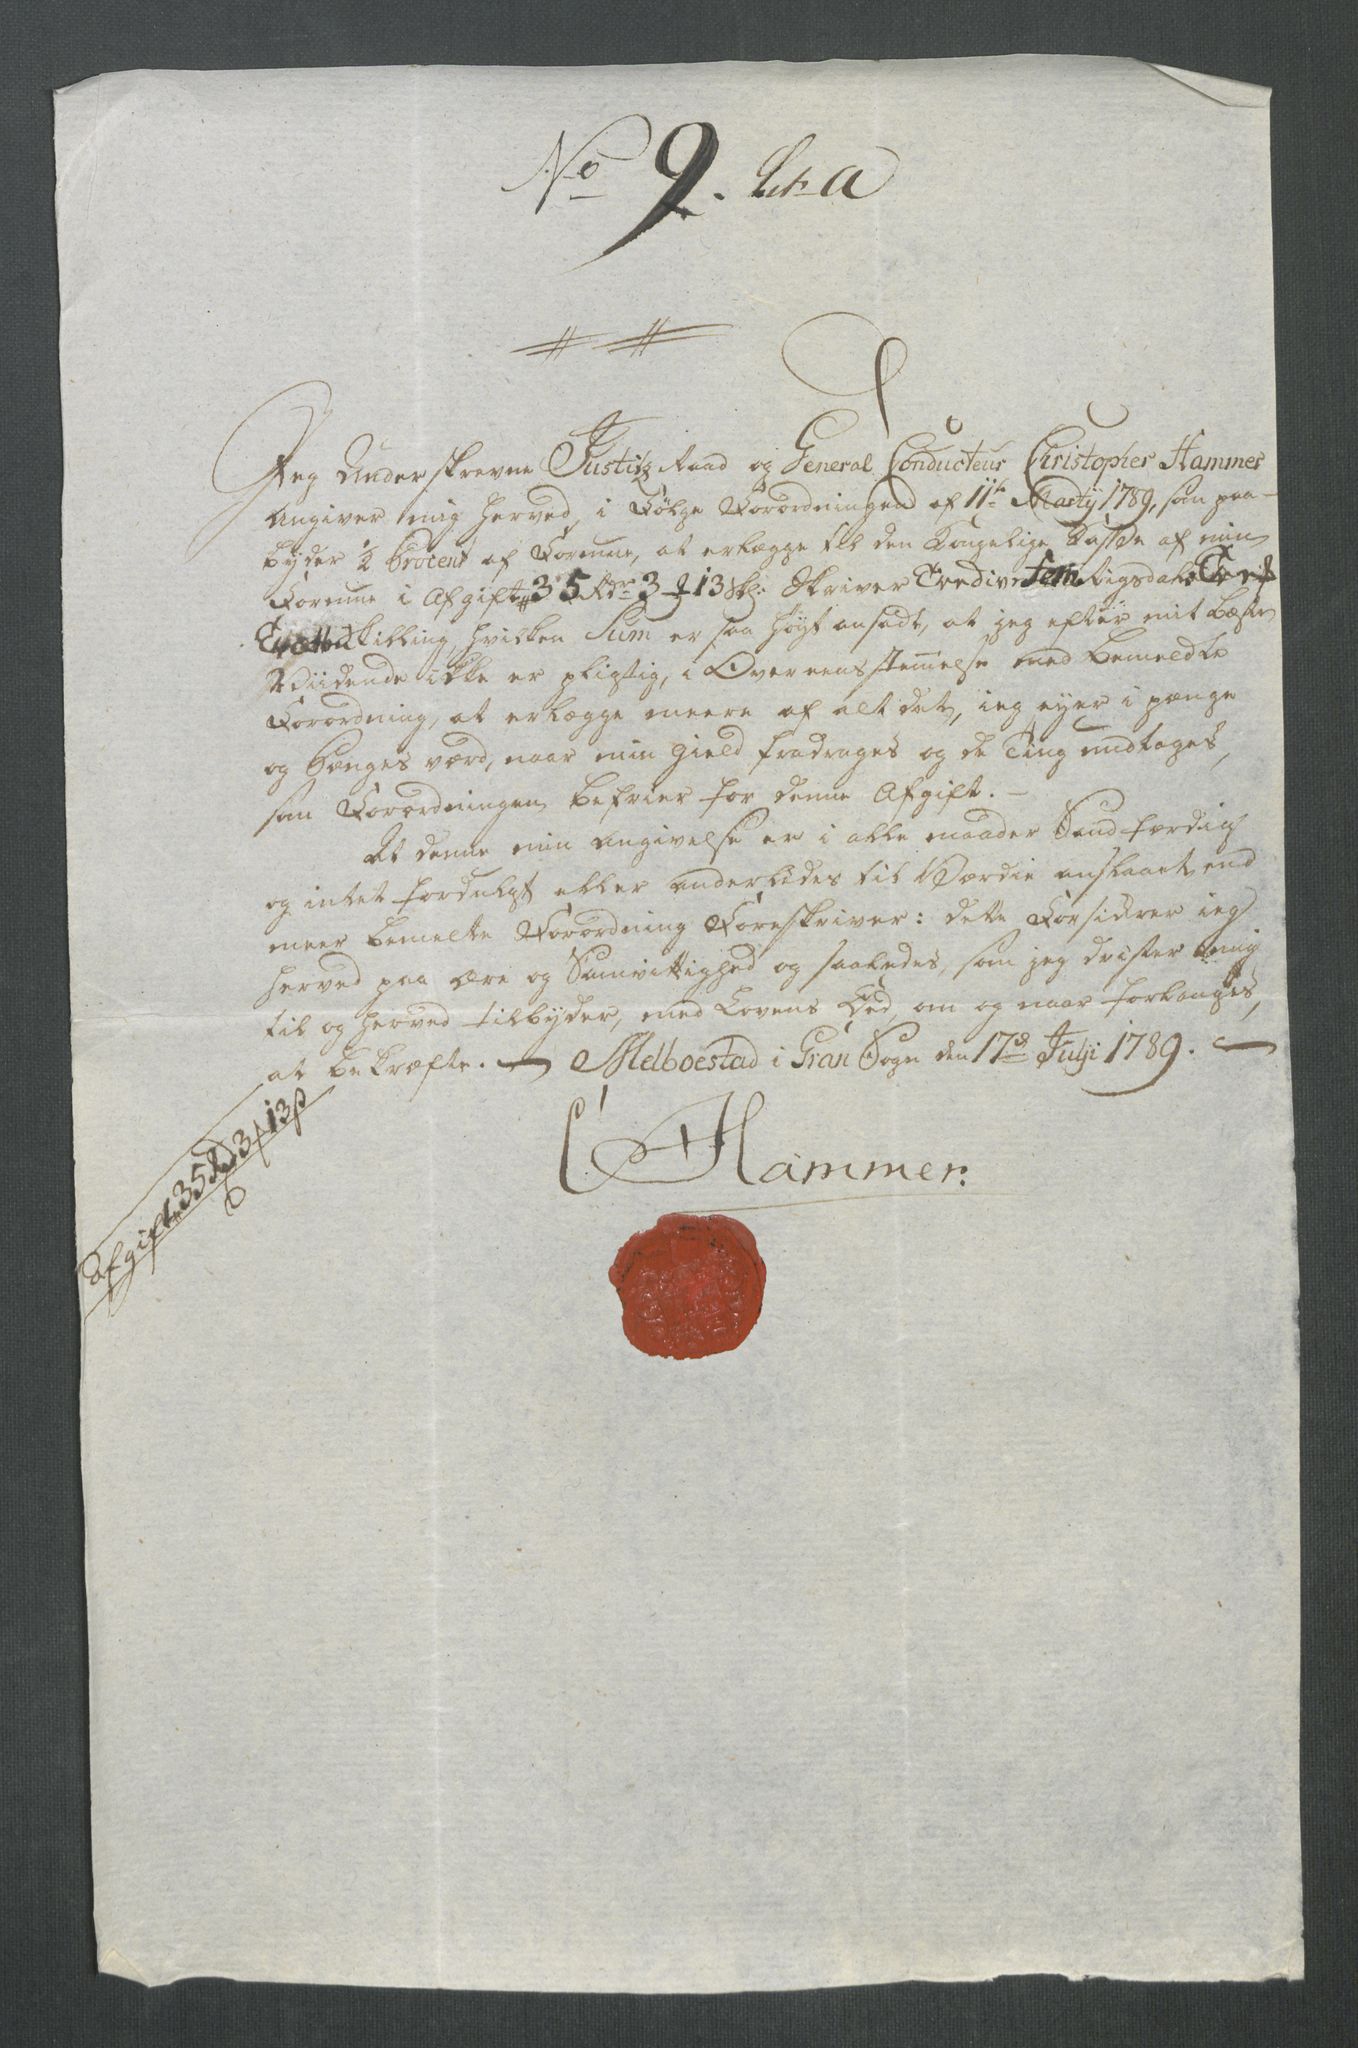 No 9. Litr a
Jeg Underskrevne Justitz Raad og General Conducteur Christopher Hammer
angiver mig herved, i Følge Forordningen af 11te Martij 1789, som paa-
byder ½ Procent af Formue, at erlægge til den Kongelige Kasse af min
Formue i Afgift 35 Rdr 3 ₰ 13 skl: Skriver Tredive fem Rigsdaler Tre ₰
Tretten Skilling, hvilken Sum er saa høyt ansadt, at jeg efter mit beste
Vidende ikke er pligtig, i Overeensstemmelse med bemeldte
Forordning, at erlægge meere af alt det, ieg eyer i penge
og Penges værd, naar min Gield fradrages og de Ting undtages,
som Forordningen befrier for denne Afgift. -
At denne min angivelse er i alle maader Sandfærdig
og intet fordulgt eller anderledes til Værdie anslaaet end
meer bemelte Forordning Foreskriver: dette Forsikrer ieg
herved paa ære og Samvittighed og saaledes, som jeg drister mig
til og herved tilbyder, med Lovens Eed, om og naar forlanges,
at bekræfte. - Melboestad i Gran Sogn den 17de Julji 1789. -
afgift 35 Rd 3 ₰ 13 ß
C Hammer.